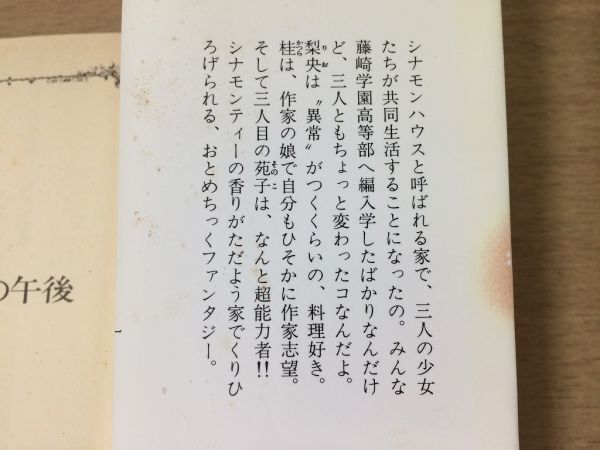 シナモンハウスと呼ばれる家で、三人の少女
たちが共同生活することになったの。みんな
藤崎学園高等部へ編入学したばかりなんだけ
ど、三人ともちょっと変わったコなんだよ。
梨央は〝異常〟がつくくらいの、料理好き。
桂は、作家の娘で自分もひそかに作家志望。
そして三人目の苑子は、なんと超能力者!!
シナモンティーの香りがただよう家でくりひ
ろげられる、おとめちっくファンタジー。
の午後